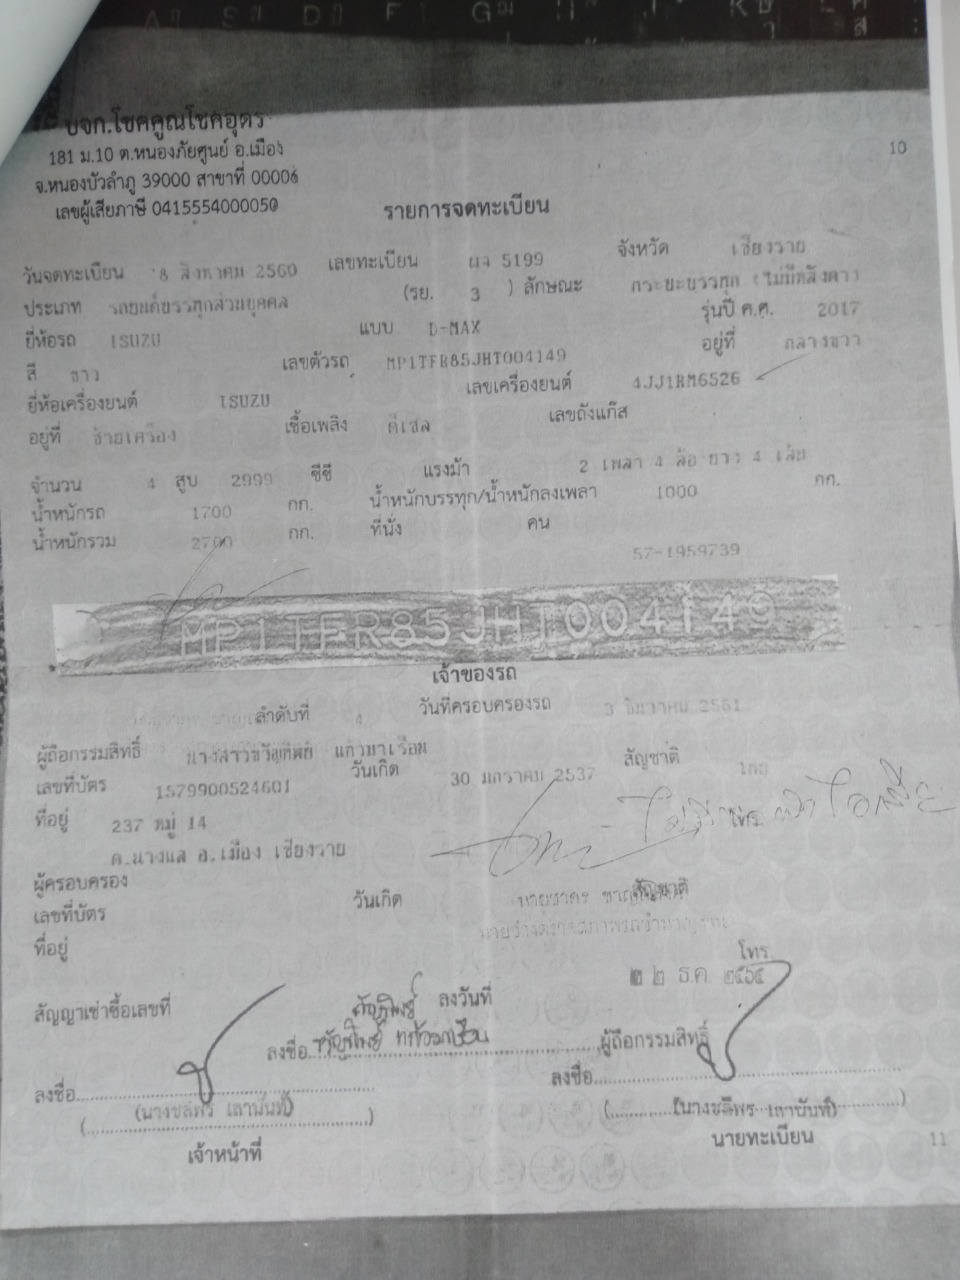 บจก.โชคคูณโชคอุดร
181 ม.10 ต.หนองภัยศูนย์ อ.เมือง
จ.หนองบัวลำภู 39000 สาขาที่ 00006
เลขผู้เสียภาษี 0415554000050
10
รายการจดทะเบียน
วันจดทะเบียน 8 สิงหาคม 2560 เลขทะเบียน ผจ 5199 จังหวัด เชียงราย
ประเภท รถยนต์บรรทุกส่วนบุคคล (รย. 3 ) ลักษณะ กระบะบรรทุก (ไม่มีหลังคา)
ยี่ห้อรถ ISUZU แบบ D-MAX รุ่นปี ค.ศ. 2017
สี ขาว เลขตัวรถ MP1TFR85JHT004149 อยู่ที่ กลางขวา
ยี่ห้อเครื่องยนต์ ISUZU เลขเครื่องยนต์ 4JJ1RM6526
อยู่ที่ ซ้ายเครื่อง เชื้อเพลิง ดีเซล เลขถังแก๊ส
จำนวน 4 สูบ 2999 ซีซี แรงม้า 2 เพลา 4 ล้อ ยาง 4 เส้น
น้ำหนักรถ 1700 กก. น้ำหนักบรรทุก/น้ำหนักลงเพลา 1000 กก.
น้ำหนักรวม 2700 กก. ที่นั่ง คน
57-1959739
MP1TFR85JHT004149
เจ้าของรถ
ลำดับที่ 4 วันที่ครอบครองรถ 3 ธันวาคม 2561
ผู้ถือกรรมสิทธิ์ นางสาวขวัญทิพย์ แก้วมาเรือน
เลขที่บัตร 1579900524601 วันเกิด 30 มกราคม 2537 สัญชาติ ไทย
ที่อยู่ 237 หมู่ 14 โทร.
ต.นางแล อ.เมือง เชียงราย
ผู้ครอบครอง
เลขที่บัตร วันเกิด สัญชาติ
ที่อยู่
โทร.
๒๒ ธ.ค. ๒๕๖๔
สัญญาเช่าซื้อเลขที่ ลงวันที่
ลงชื่อ ผู้ถือกรรมสิทธิ์
ลงชื่อ ลงชื่อ
(นางชลีพร เลานันท์) (นางชลีพร เลานันท์)
เจ้าหน้าที่ นายทะเบียน
11